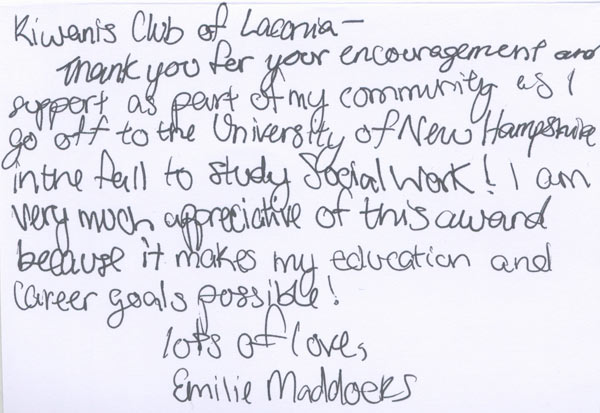 Kiwanis Club of Laconia—
Thank you for your encouragement and
support as part of my community as I
go off to the University of New Hampshire
in the fall to study Social Work! I am
very much appreciative of this award
because it makes my education and
career goals possible!
lots of love,
Emilie Maddocks